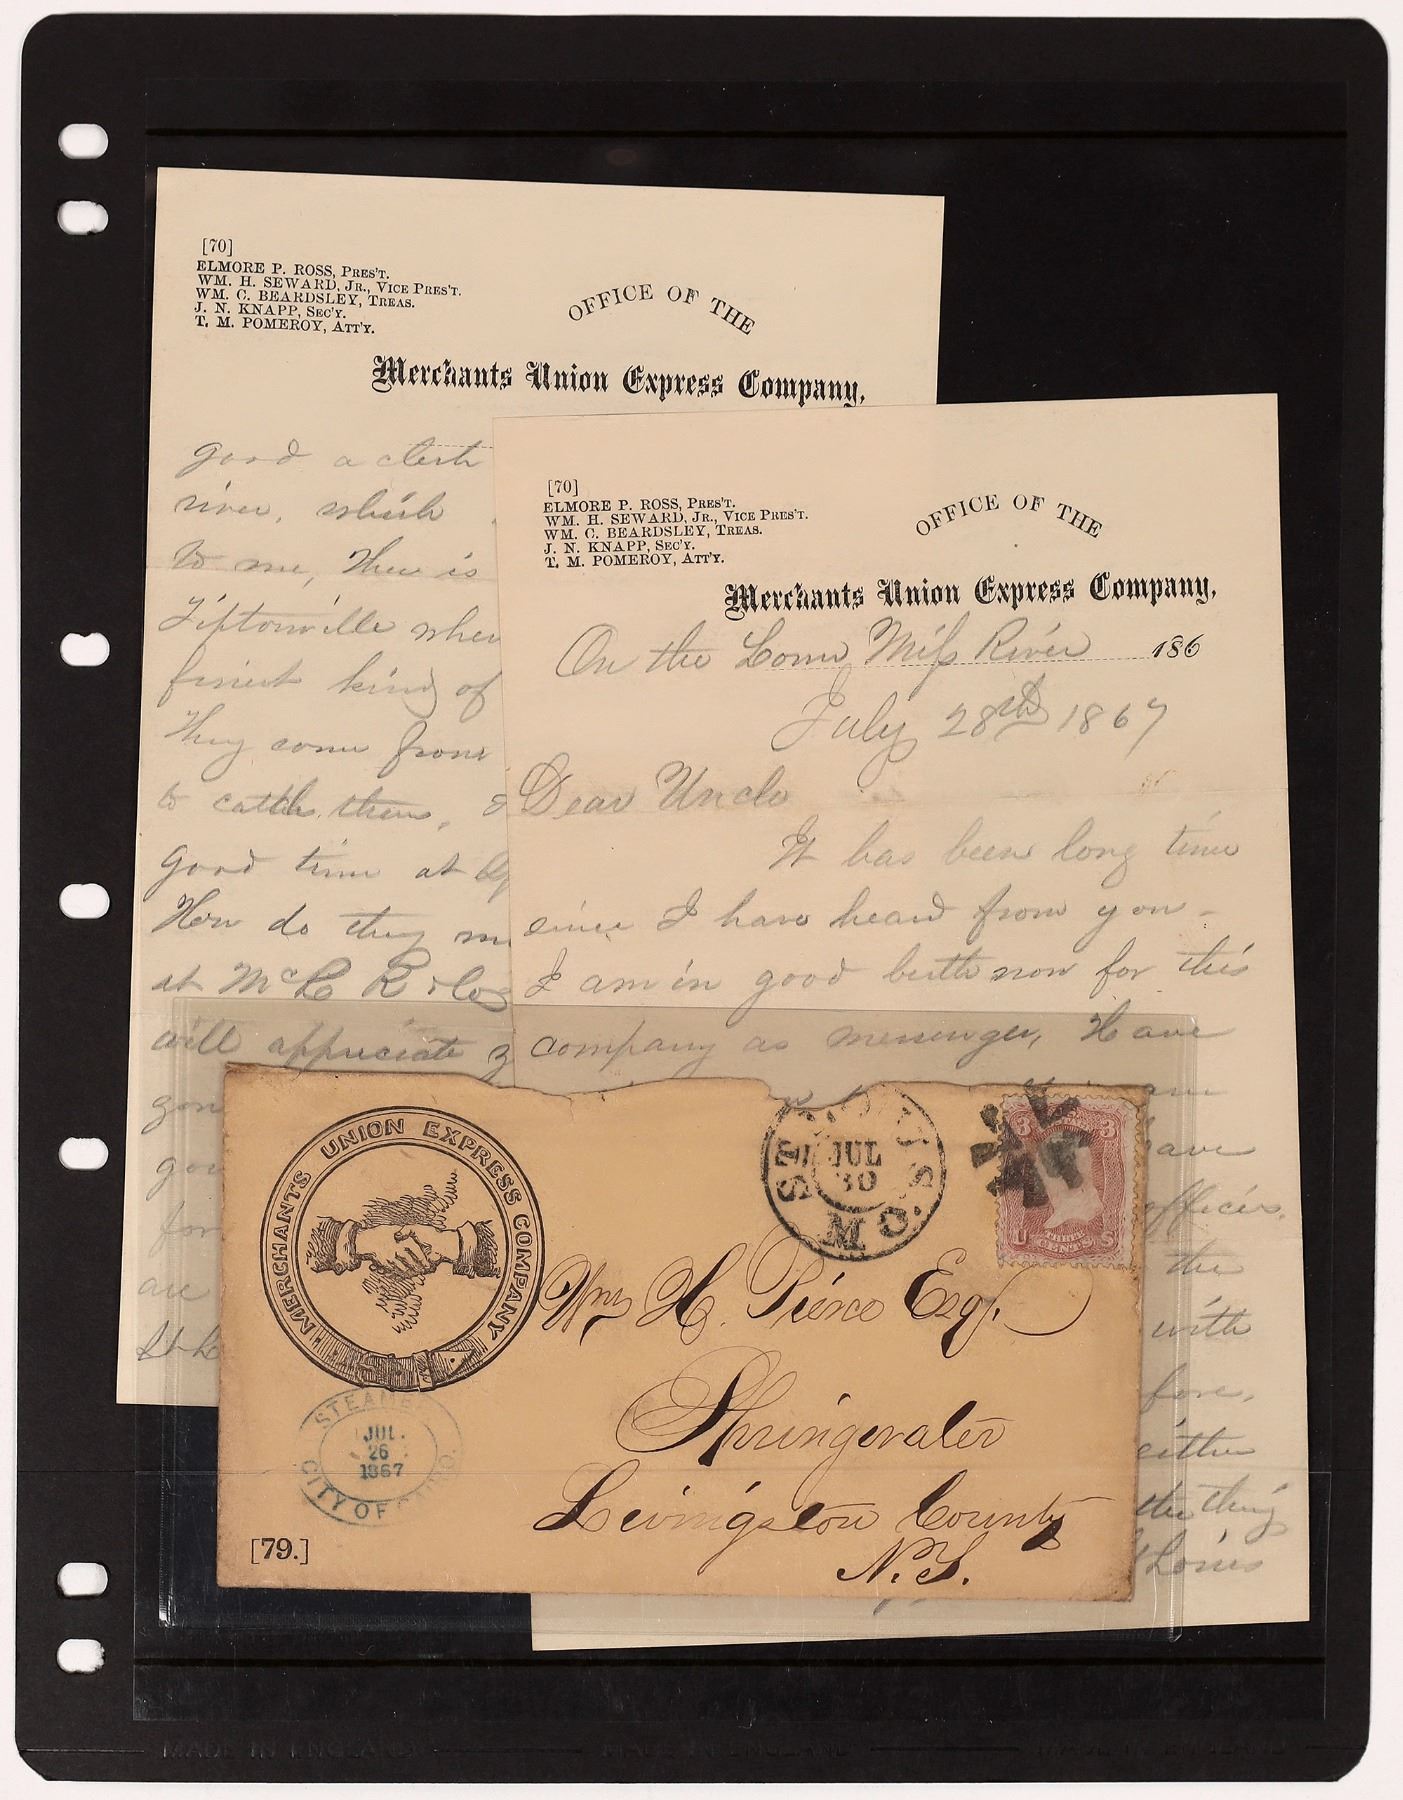 [70]
ELMORE P. ROSS, PRES'T.
WM. H. SEWARD, JR., VICE PRES'T.
WM. C. BEARDSLEY, TREAS.
J. N. KNAPP, SEC'Y.
T. M. POMEROY, ATT'Y.
OFFICE OF THE
Merchants Union Express Company,
good a clerk
river, which
to me, There is
Tiptonville wher
finest kind of
They come from
to catch them,
good time at
How do they
at McL R & Cos
will appreciate
gon
gou
for
are
St L
[70]
ELMORE P. ROSS, PRES'T.
WM. H. SEWARD, JR., VICE PRES'T.
WM. C. BEARDSLEY, TREAS.
J. N. KNAPP, SEC'Y.
T. M. POMEROY, ATT'Y.
OFFICE OF THE
Merchants Union Express Company,
On the Lower Miss River 186
July 28th 1867
Dear Uncle
It has been long time
since I have heard from you -
I am in good berth now for this
company as messenger, Have
am
have
officers.
the
with
fore,
either
the thing
Louis
MERCHANTS UNION EXPRESS COMPANY
ST. LOUIS
JUL
30
MO.
3 3
U THREE CENTS S
Wm H. Pierce Esq.
Springwater
Livingston County
N.Y.
STEAMER
JUL.
26
1867
CITY OF CAIRO.
[79.]
MADE IN ENGLAND MADE IN ENGLAND MADE IN ENGLAND